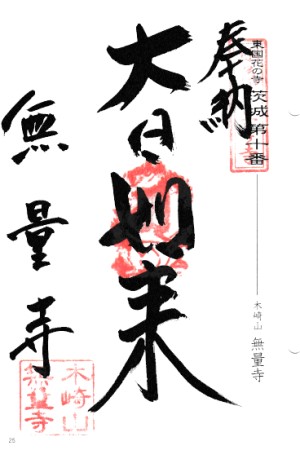 奉納
東国花の寺
茨城 第十番
木崎山 無量寺
大日如来
無量寺
木崎山
無量寺
26